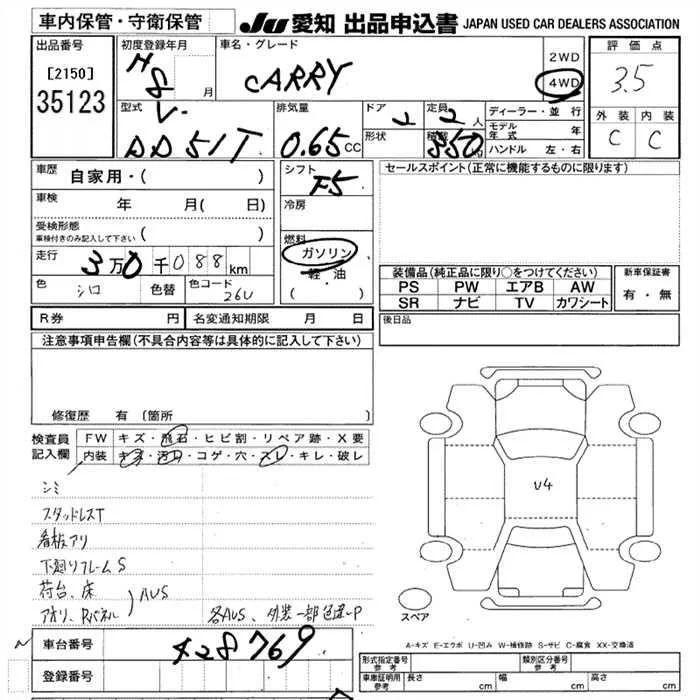 車内保管・守衛保管
JU 愛知 出品申込書 JAPAN USED CAR DEALERS ASSOCIATION
出品番号
[2150]
35123
初度登録年月
H 8 月
車名・グレード
CARRY
2WD
4WD
評価点
3.5
外装 内装
C C
型式
V-
DD51T
排気量
0.65 CC
ドア
2
形状
定員
2 人
積載
350
ディーラー・並行
モデル年式 年
ハンドル 左・右
車歴
自家用・( )
車検 年 月( 日)
受検形態
車検付きのみ記入して下さい ( )
走行
3万0千088km
色 シロ 色替 色コード 26U
シフト
F5
冷房
燃料
ガソリン
軽・油
(・ )
セールスポイント(正常に機能するものに限ります)
装備品(純正品に限り○をつけてください)
PS PW エアB AW
SR ナビ TV カワシート
新車保証書
有・無
R券 円 名変通知期限 月 日
後日品
注意事項申告欄(不具合内容等は具体的に記入して下さい)
修復歴 有(箇所 )
検査員記入欄
FW キズ・飛石・ヒビ割・リペア跡・X要
内装 キズ・汚れ・コゲ・穴・スレ・キレ・破レ
シミ
スタッドレスT
看板アリ
下廻りフレームS
荷台、床
アオリ、Rパネル
AUS
各AUS、外装一部色違-P
U4
スペア
A-キズ E-エクボ U-凹み W-補修跡 S-サビ C-腐食 XX-交換済
車台番号
428769
登録番号
形式指定番号
参考
類別区分番号
参考
車庫証明用
参考
長さ cm 幅 cm 高さ cm